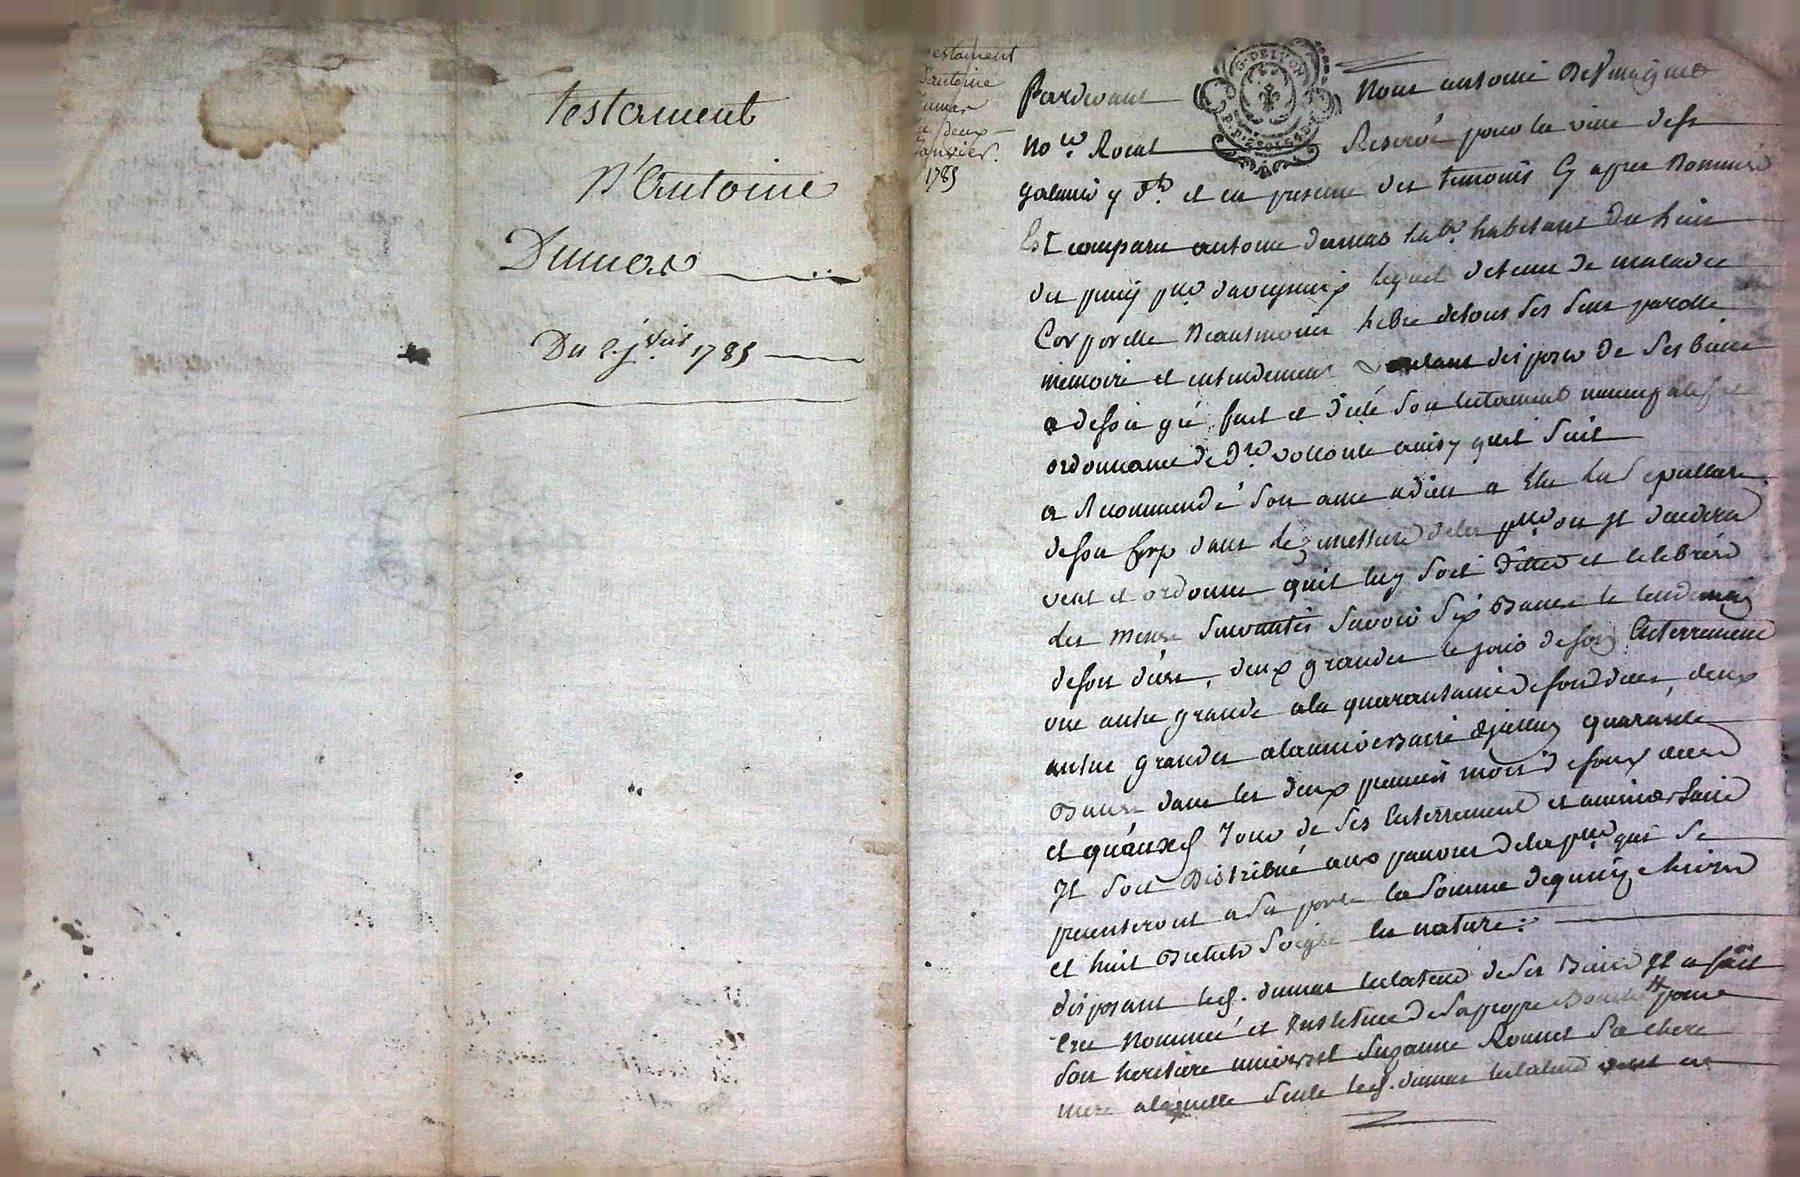 testament
d'Antoine
Dumas
Du 2. jvier 1785
testament
d'antoine
Dumas
du deux
Janvier.
1785
G. DE LYON
Pardevant Nous antoine
Nore Royal Reservé pour la ville de St
galmier y st et en presence des temoins cy apres Nommés
Est comparu antoine dumas labr. habitant du lieu
du pnsse d'aveyzieux lequel detenu de maladie
Corporelle Neantmoins libre de tous ses sens parolle
memoire et entendement voulant disposer de ses biens
a de son gré fait et dicté son testament nuncupatif et
ordonnance de dre vollonté ainsy quil suit
a Recommandé son ame a dieu a Elu la sepulture
de son corps dans le cimettiere de la psse ou Il decedera
veut et ordonne quil luy soit dittes et celebrées
les messes suivantes savoir six Basses le lendemain
de son deces, deux grandes le jour de son Enterrement
une autre grande a la quarantaine de son deces, deux
autres grandes a l'anniversaire quarante
Basses dans les deux premiers mois de son deces
et quaux Jour de ses Enterrement et anniversaire
Il soit Distribué aux pauvres de la psse qui se
presenteront a sa porte la somme de quinze livres
et huit Bichets seigle En nature:
disposant led. dumas testateur de ses Biens Il a fait
Cree Nommé et Institué de sa propre Bouche pour
son heritiere universelle Suzanne sa chere
mere a laquelle seule led. dumas testateur veut